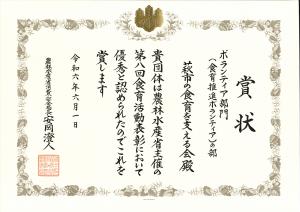 賞状
ボランティア部門
(食育推進ボランティア)の部
萩市の食育を支える会殿
貴団体は農林水産省主催の
第八回食育活動表彰において
優秀と認められたのでこれを
賞します
令和六年六月一日
農林水産省消費・安全局長 安岡澄人